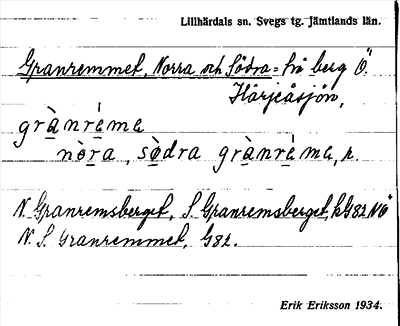 Lillhärdals sn. Svegs tg. Jämtlands län.
Granremmet, Norra och Södra = två berg Ö.
Härjeåsjön,
grànréma
nòra, sòdra grànréma, n.
N. Granremsberget, S. Granremsberget, kG82 NÖ
N. S. Granremmet, G82.
Erik Eriksson 1934.